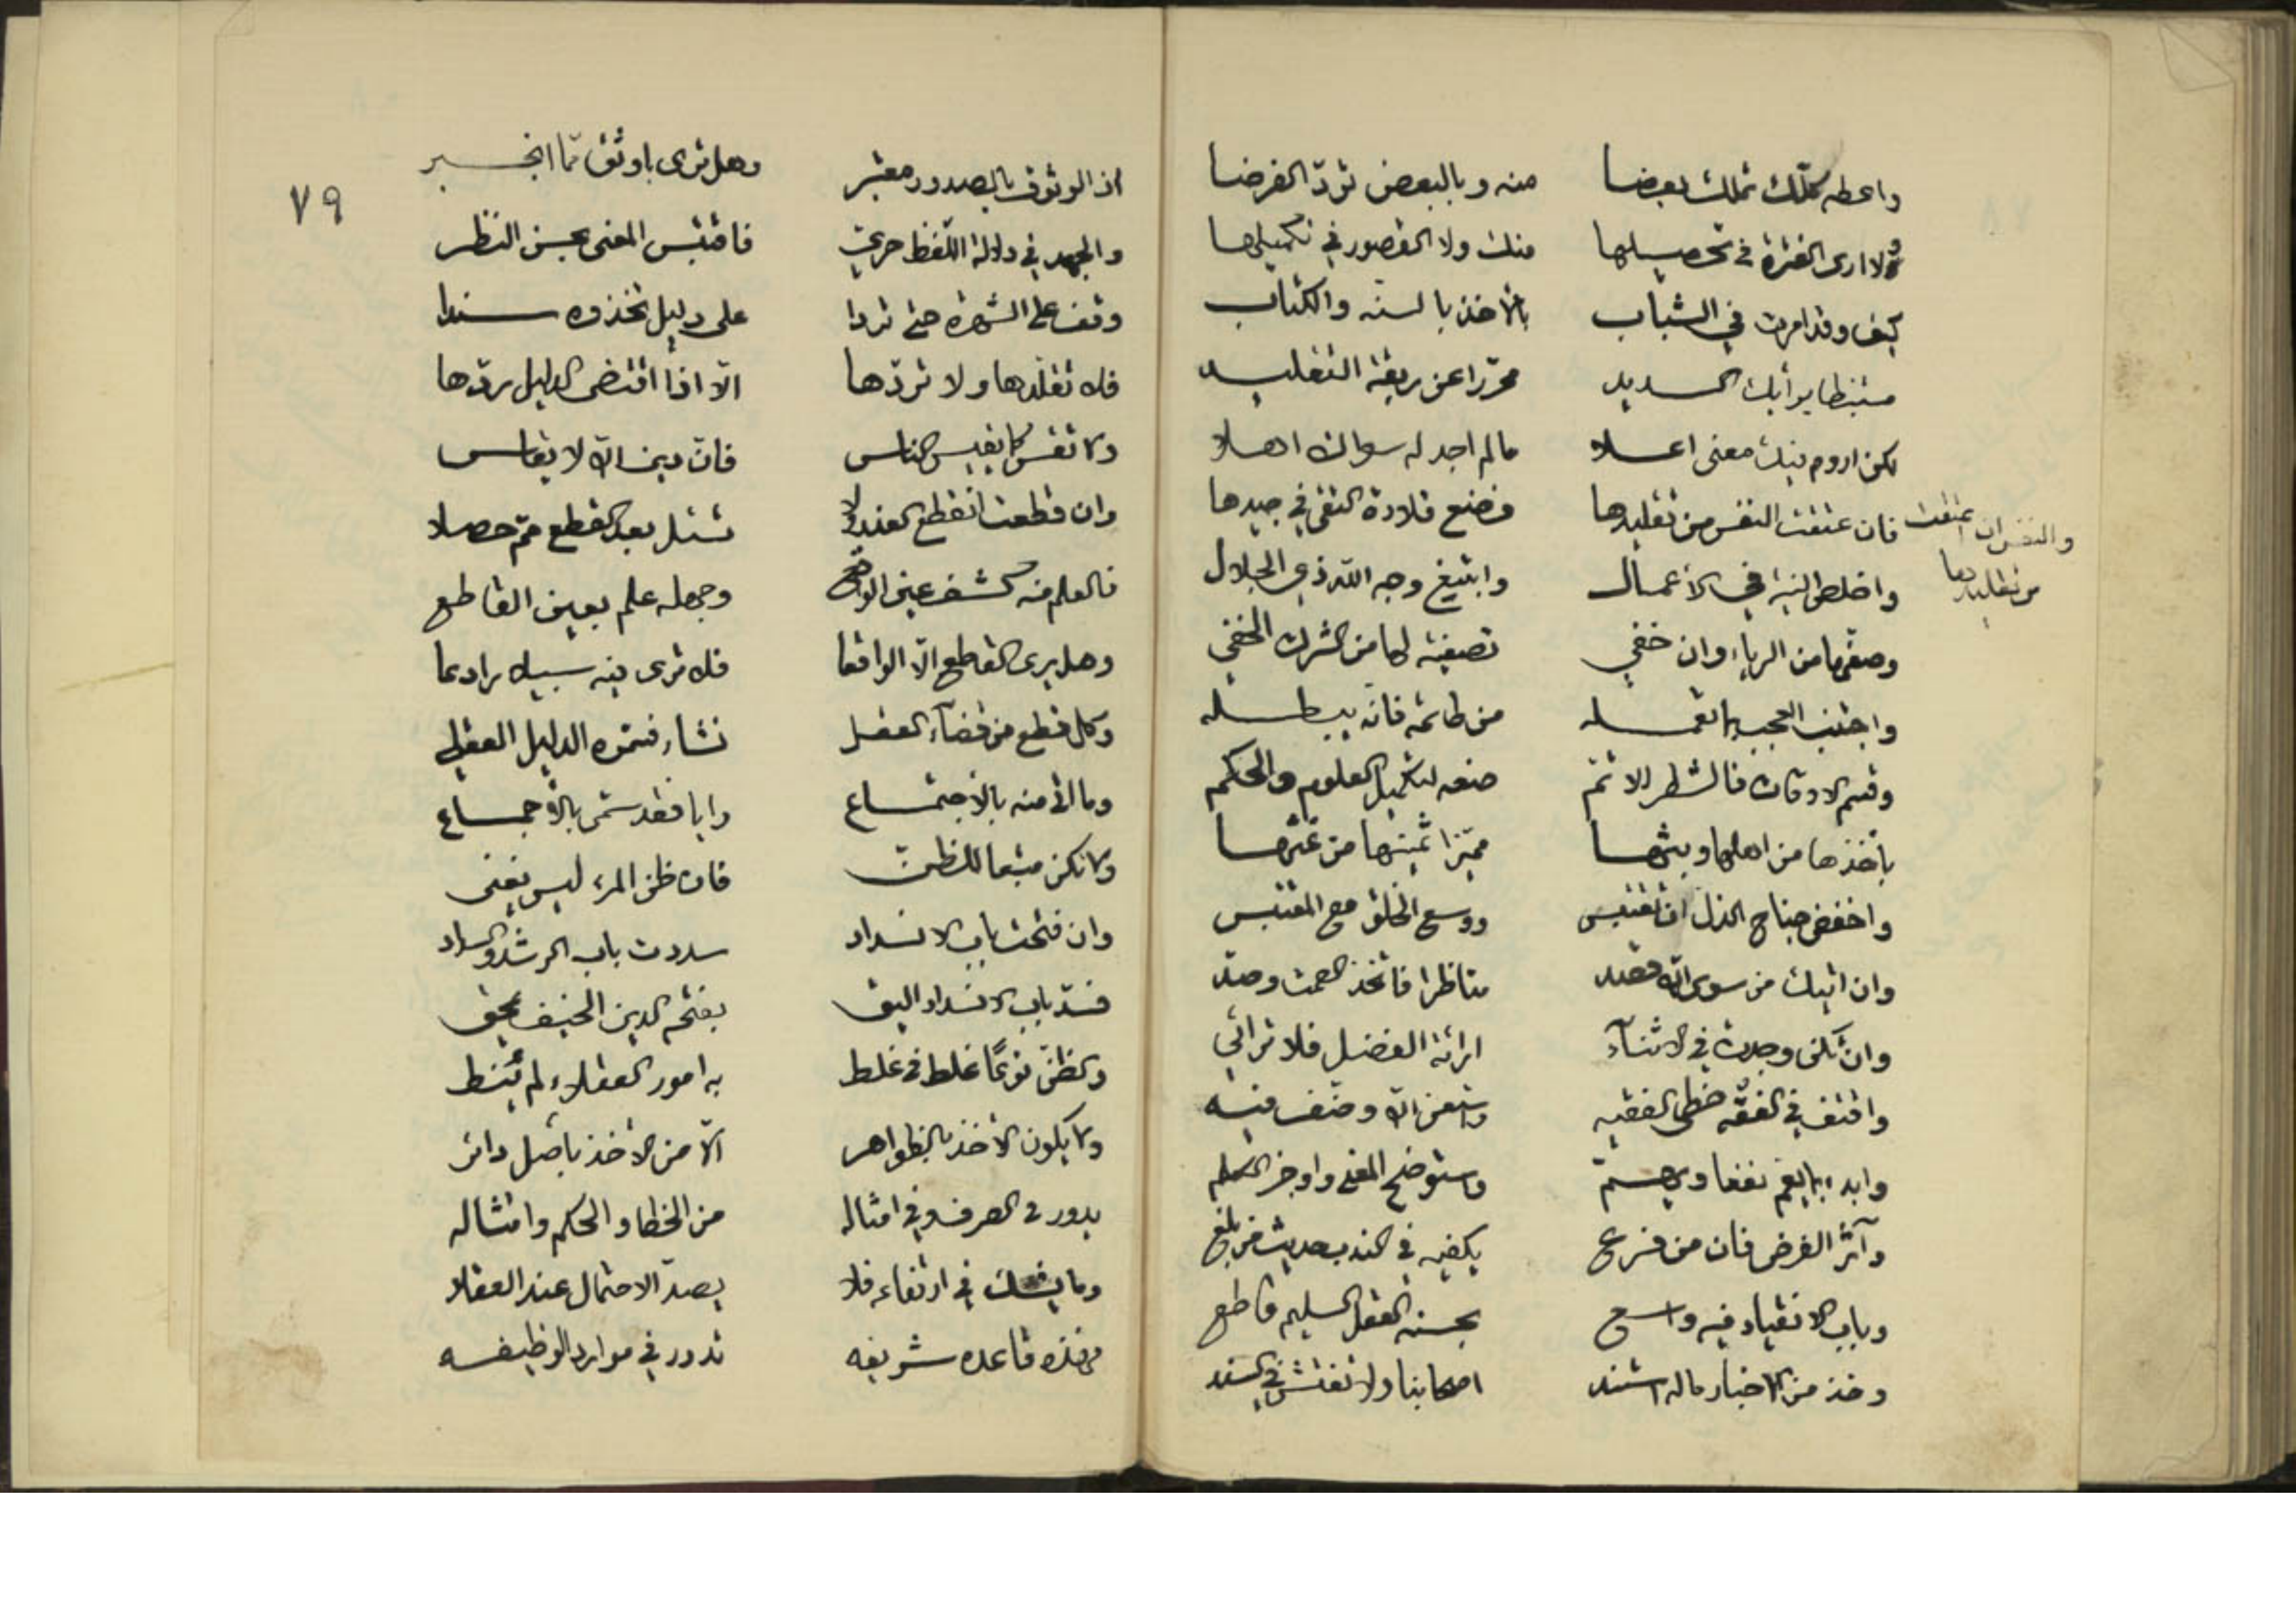 واعطه كلّك تملك بعضا منه وبالبعض تؤدّ الفرضا
ولا ارى الفترة في تحصيلها منك ولا القصور في تكميلها
كيف وقد امرت في الشباب بالأخذ بالسنه والكتاب
مستنبطا برأيك السديد محرّرا عن ربقة التقليد
لكن اروم فيك معنى اعلا مالم اجد له سواك اهلا
فان عتقت النفس من تقليدها فضع قلادة التقى في جيدها
والنفس ان عتقت من تقليدها
واخلص النية في الأعمال وابتغ وجه اللّه ذي الجلال
وصفّها من الرياء وان خفي تصفية لها من الشرك الخفي
واجتنب العجب بما تعمله من طاعة فانّه يبطله
وقسم الاوقات فالشطر الاتم ضعه لتكميل العلوم والحكم
بأخذها من اهلها وبثها مميّزا ثمينها من غثها
واخفض جناح الذل ان تقتبس ووسع الخلق مع المقتبس
وان اتيك من سوى اللّه قصد مناظرا فاتخذ الصمت وصد
وان تكن وجدت في الاثناء ارائة الفضل فلا ترائي
واقتف في الفقه خطى الفقيه واستعن اللّه وخف فيه
وابدء بما يعم نفعا ويهم واستوضح المعنى واوجز الكلم
وآثر الفرض فان من فرع يكفيه في الندب حديث من بلغ
وباب الانقياد فيه واسع بحسنه العقل السليم قاطع
وخذ من الاخبار ما له استند اصحابنا ولا تفتش في السند
٧٩
اذ الوثوق بالصدور معتبر وهل ترى باوثق ممّا انجبر
والجهد في دلالة اللّفظ حري فاقتبس المعنى بحسن النظر
وقف على الشهرة حتى تردا على دليل تخذوه سندا
فلا تقلّدها ولا تردّها الّا اذا اقتضى الدليل ردّها
ولا تقس كما يقيس الناس فانّ دين اللّه لا يقاس
وان قطعت انقطع العذر ولا تسئل بعد القطع ممّ حصلا
فالعلم فيه كشف عين الواقع وجهله علم بعين القاطع
وهل يرى القاطع الّا الواقعا فلا ترى فيه سبيلا رادعا
وكل قطع من قضاء العقل نشاء فسمّوه الدليل العقلي
وما اتى منه بالاجتماع رايا فقد سمّي بالأجماع
ولا تكن متبعا للظنّ فان ظن المرء ليس يغني
وان فتحت باب الانسداد سددت باب الرشد والسداد
فسدّ باب الانسداد اليق بفتحه الدين الحنيف يحق
والظنّ نوعًا غلط في غلط به امور العقلاء لم تنط
ولا يكون الأخذ بالظواهر الّا من الأخذ باصل دائر
يدور في الصرف وفي امثاله من الخطا والحكم وامتثاله
وما يشك في ارتفاعه فلا يصدّ الاحتمال عند العقلا
فهذه قاعده شريفه تدور في موارد الوظيفه